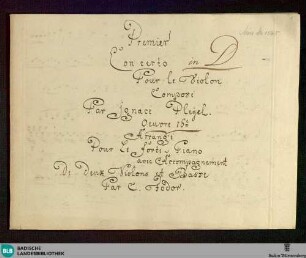 Premier
Concerto in D
Pour le Violon
Composé
Par Ignace Pleyel.
Oeuvre 15e
Arrangé
Pour le forte Piano
avec Accompagnement
De Deux Violons et Basse
Par C. Fodor.
BLB
BADISCHE
LANDESBIBLIOTHEK